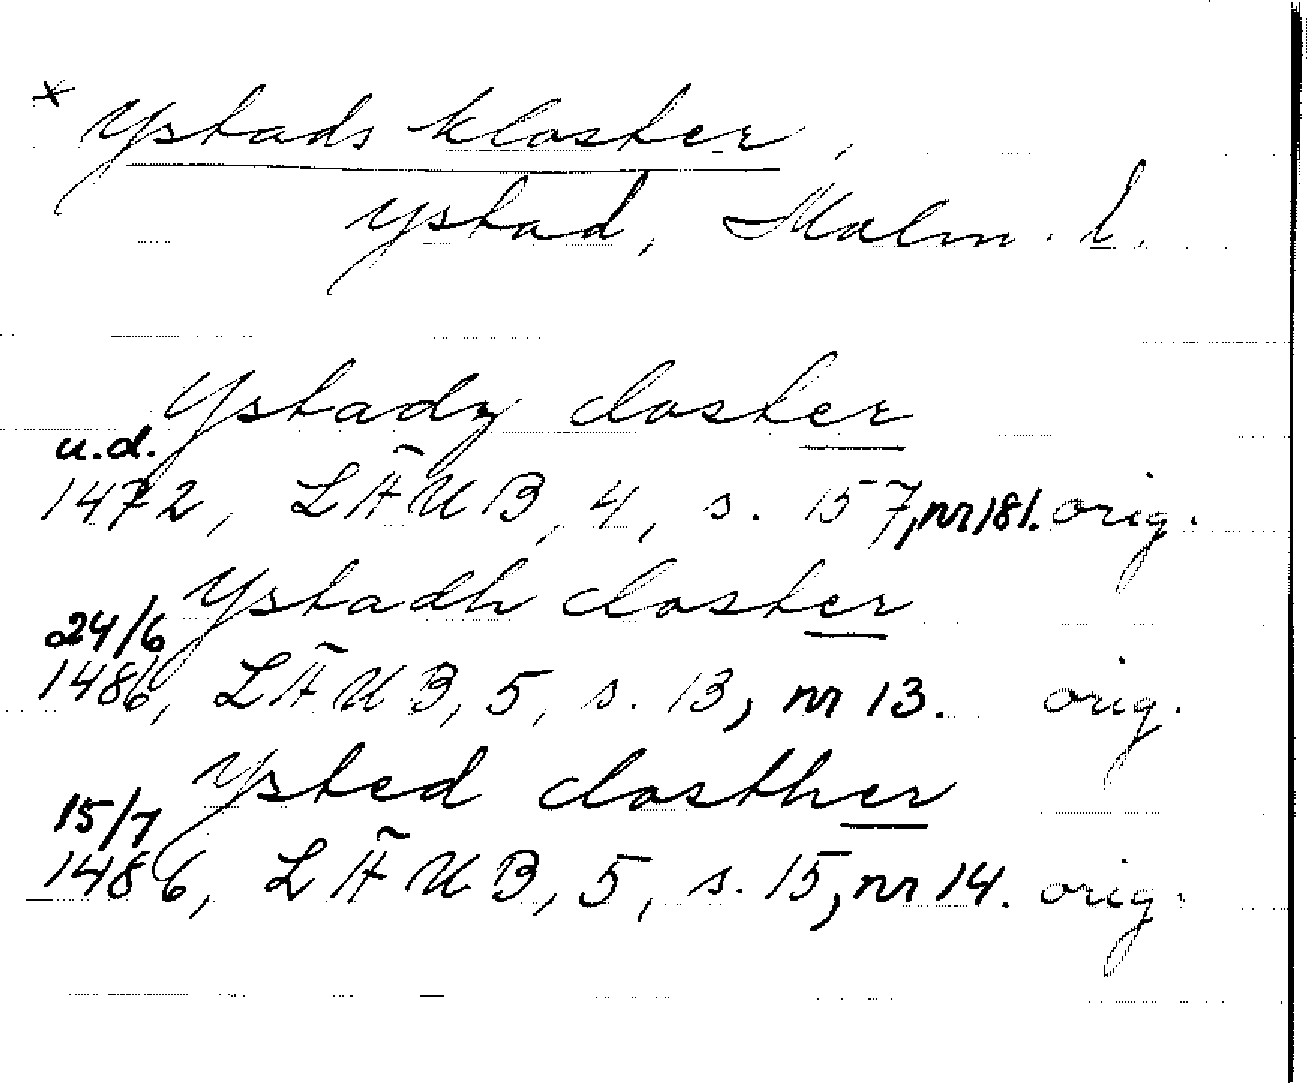 x Ystads kloster,
Ystad, Malm. l.
Ystadz closter
u.d.
1472, LÄUB, 4, s. 157, nr 181. orig.
Ystadh closter
24/6
1486, LÄUB, 5, s. 13, nr 13. orig.
Ysted closther
15/7
1486, LÄUB, 5, s. 15, nr 14. orig.